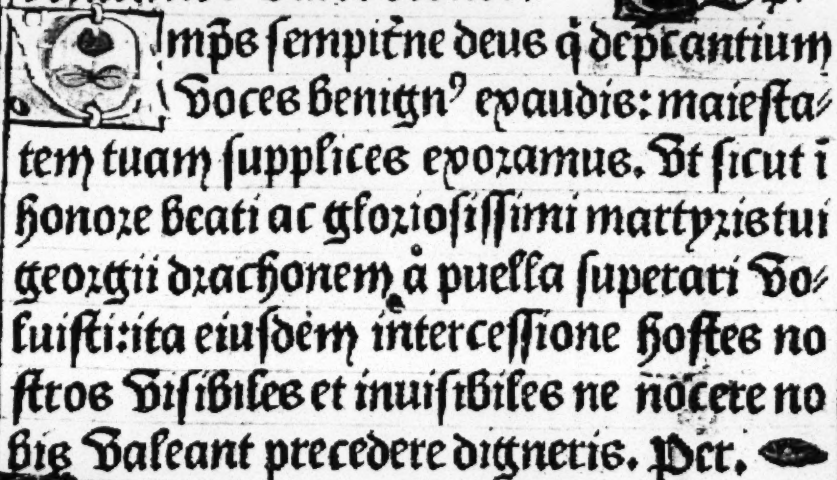 Omp̄s sempit̄ne deus q̄ dep̄cantium
voces benignꝰ exaudis: maiesta⸗
tem tuam supplices exoramus. Vt sicut ī
honore beati ac gloriosissimi martyris tui
georgii drachonem å puella superari vo⸗
luisti: ita eiusdem intercessione hostes no
stros visibiles et inuisibiles ne nocere no
bis valeant precedere digneris. Per.